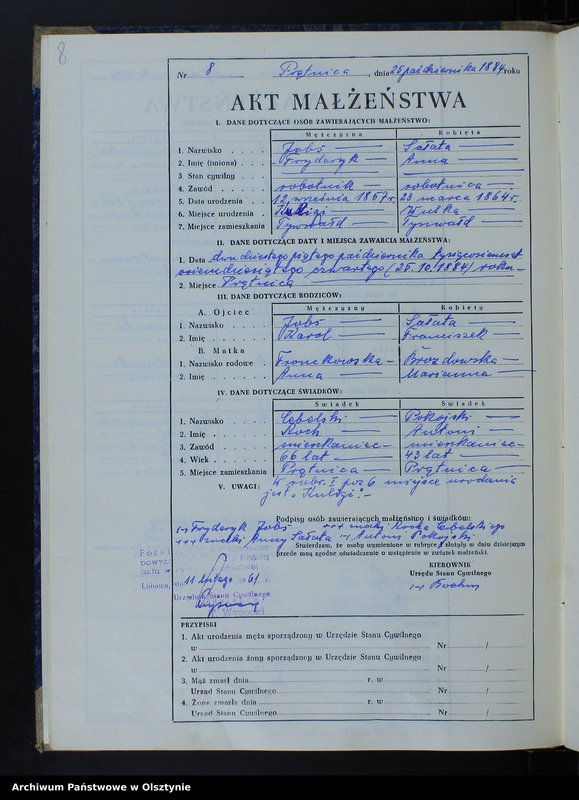 8
Nr 8 Prątnica, dnia 25 października 1884 roku
AKT MAŁŻEŃSTWA
I. DANE DOTYCZĄCE OSÓB ZAWIERAJĄCYCH MAŁŻEŃSTWO:
Mężczyzna Kobieta
1. Nazwisko Jobś Sałata
2. Imię (imiona) Fryderyk Anna
3. Stan cywilny
4. Zawód robotnik robotnica
5. Data urodzenia 12 września 1867 r. 23 marca 1864 r.
6. Miejsce urodzenia
7. Miejsce zamieszkania Tynwałd Tynwałd
II. DANE DOTYCZĄCE DATY I MIEJSCA ZAWARCIA MAŁŻEŃSTWA:
1. Data dwudziestego piątego października tysiącosiemset
osiemdziesiątego czwartego (25.10.1884) roku
2. Miejsce Prątnica
III. DANE DOTYCZĄCE RODZICÓW:
Mężczyzny Kobiety
A. Ojciec
1. Nazwisko Jobś Sałata
2. Imię Karol Franciszek
B. Matka
1. Nazwisko rodowe Franckowska Brozdowska
2. Imię Anna Marianna
IV. DANE DOTYCZĄCE ŚWIADKÓW:
Świadek Świadek
1. Nazwisko Cębelski Pokojski
2. Imię Roch Antoni
3. Zawód mieszkaniec mieszkaniec
4. Wiek 66 lat 43 lat
5. Miejsce zamieszkania Prątnica Prątnica
V. UWAGI: W rubr. I poz 6 miejsce urodzenia
jest "Kuligi".-
Podpisy osób zawierających małżeństwo i świadków:
/-/ Fryderyk Jobś +++ znaki Rocha Cębelskiego
+++ znaki Anny Sałata /-/ Antoni Pokojski
Stwierdzam, że osoby wymienione w rubryce I złożyły w dniu dzisiejszym
przede mną zgodne oświadczenie o wstąpieniu w związek małżeński.
KIEROWNIK
Urzędu Stanu Cywilnego
Lubawa, dnia 11 lutego 1961 r.
Urzędnik Stanu Cywilnego
Wysocki
PRZYPISKI
1. Akt urodzenia męża sporządzono w Urzędzie Stanu Cywilnego
w Nr /
2. Akt urodzenia żony sporządzono w Urzędzie Stanu Cywilnego
w Nr /
3. Mąż zmarł dnia r. w
Urząd Stanu Cywilnego Nr /
4. Żona zmarła dnia r. w
Urząd Stanu Cywilnego Nr /
Archiwum Państwowe w Olsztynie